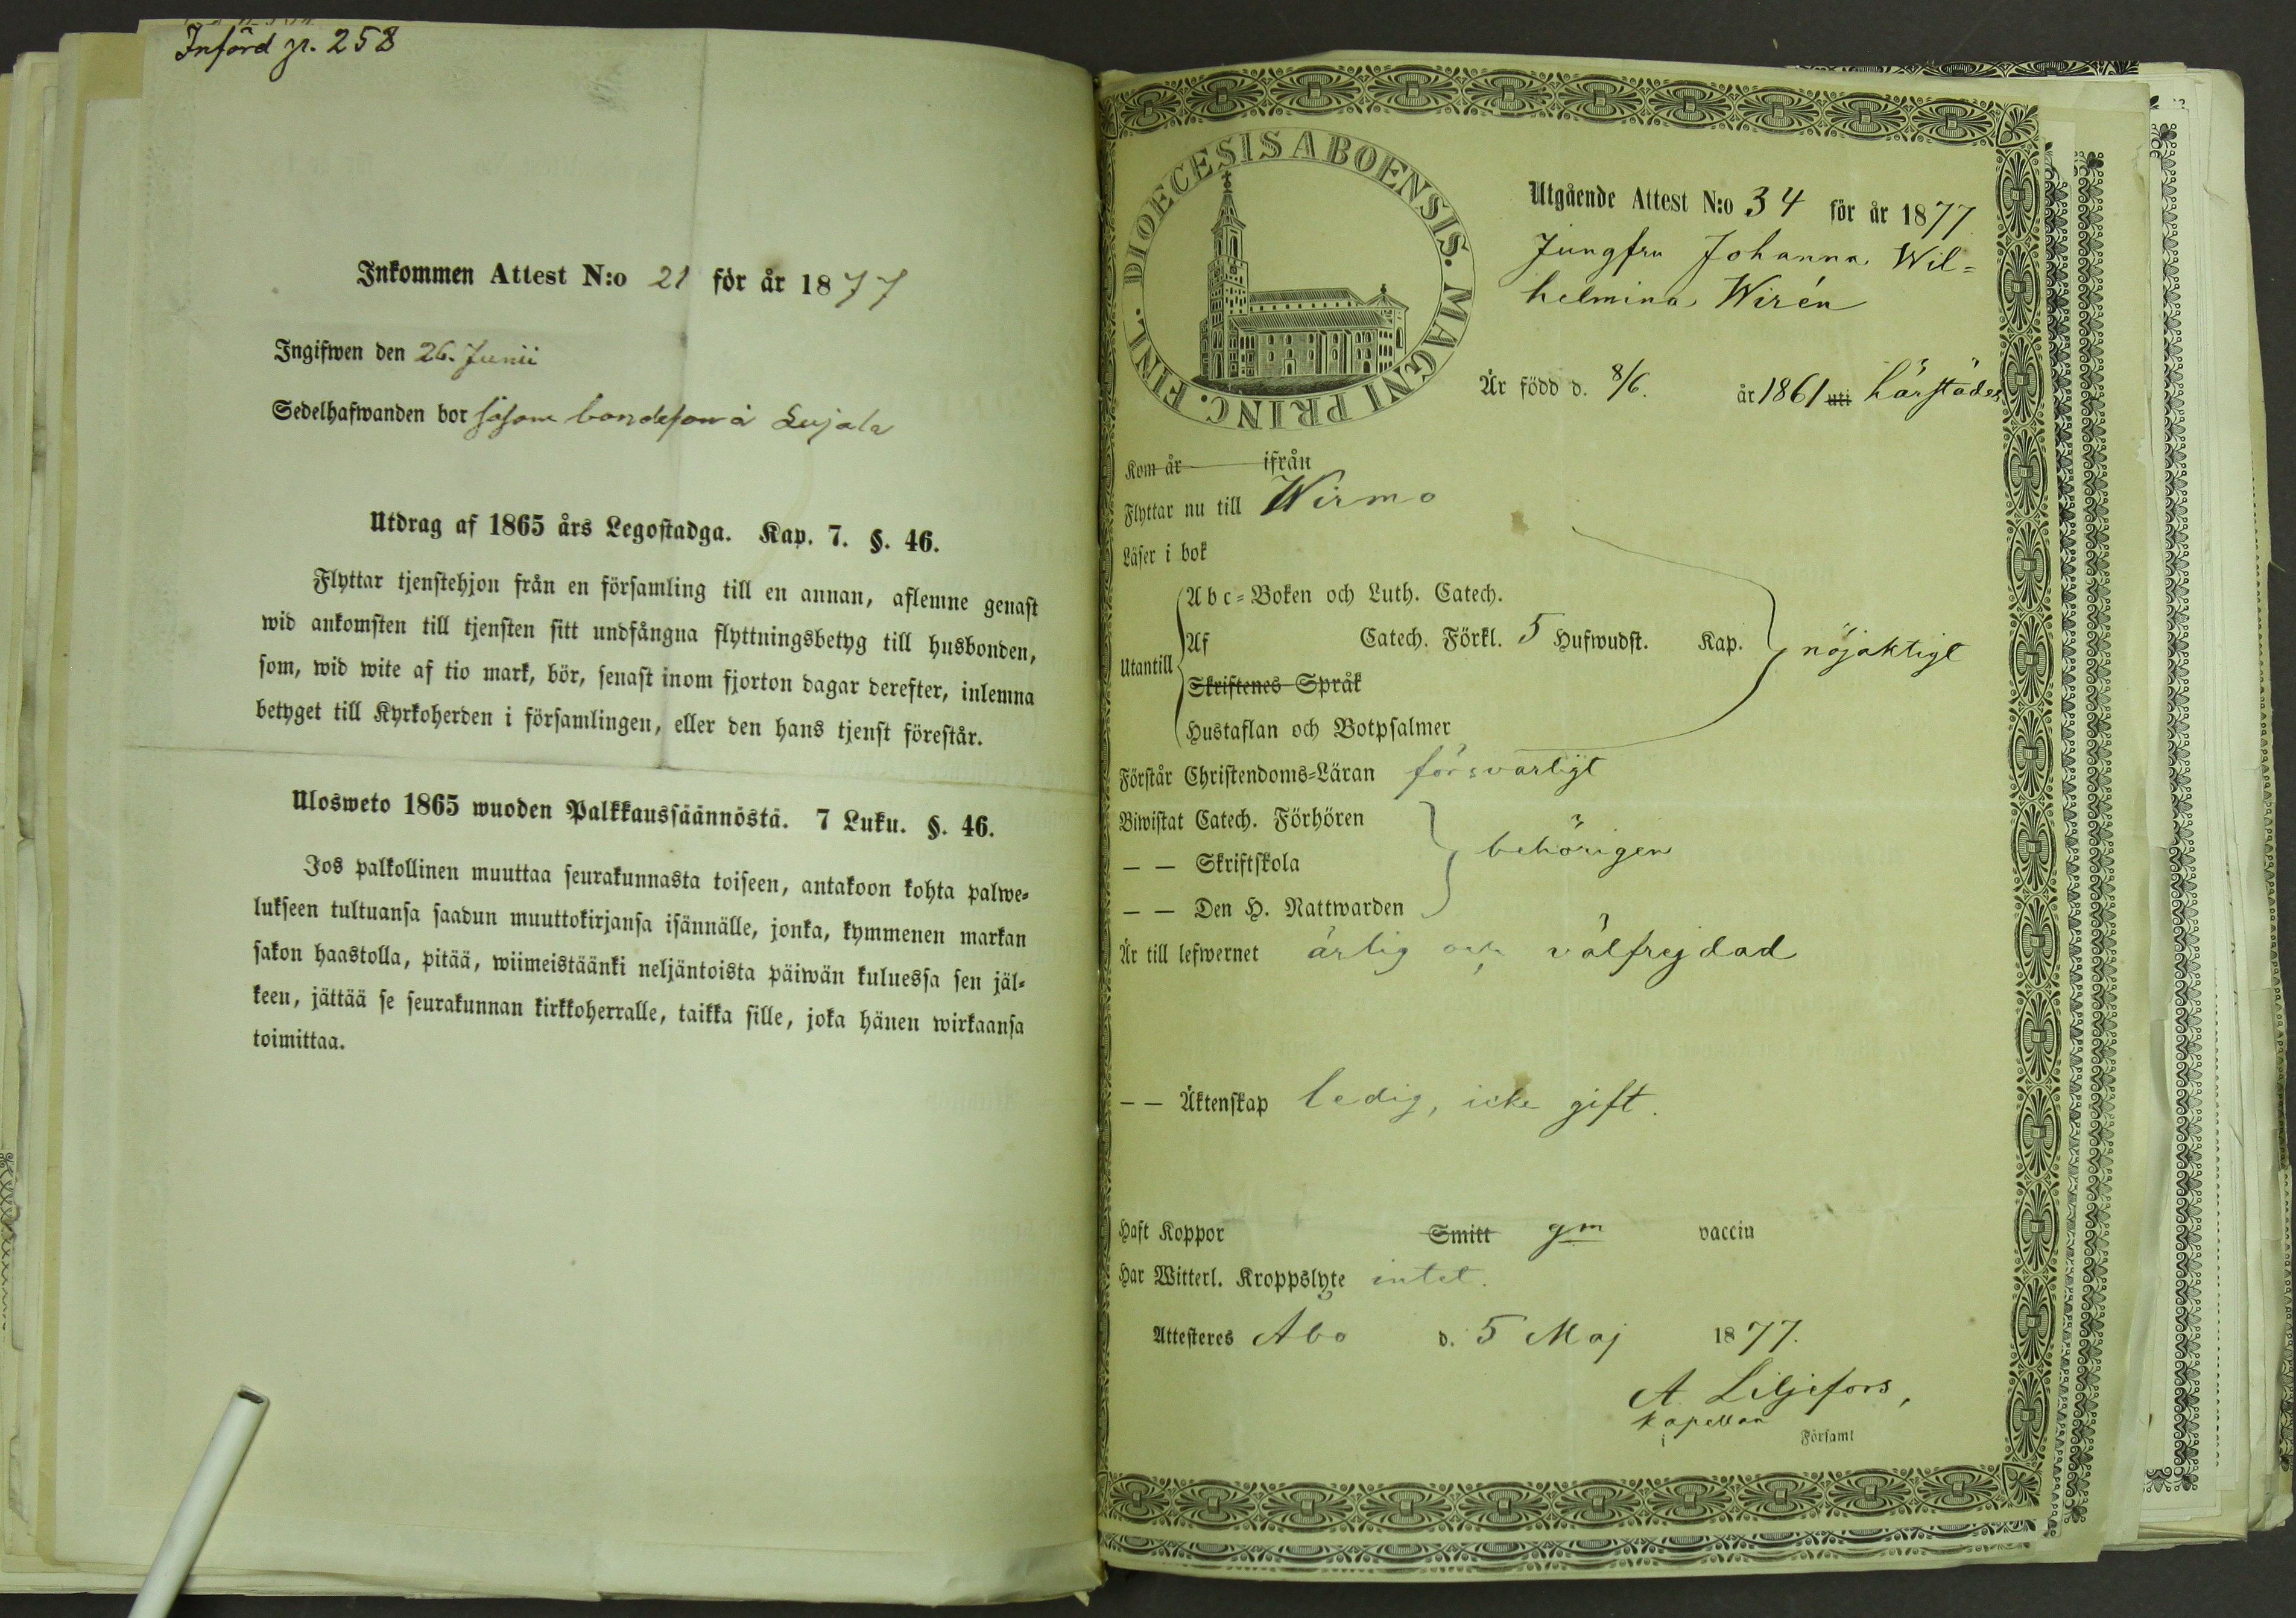 Införd p. 258
Inkommen Attest N:o 21 för år 1877
Ingifwen den 26. Junii
Sedelhafwanden bor såsom bondeson å Lujala
Utdrag af 1865 års Legostadga. Kap. 7. §. 46.
Flyttar tjenstehjon från en församling till en annan, aflemne genast
wid ankomsten till tjensten sitt undfångna flyttningsbetyg till husbonden,
som, wid wite af tio mark, bör, senast inom fjorton dagar derefter, inlemna
betyget till Kyrkoherden i församlingen, eller den hans tjenst förestår.
Ulosweto 1865 wuoden Palkkaussäännöstä. 7 Luku. §. 46.
Jos palkollinen muuttaa seurakunnasta toiseen, antakoon kohta palwe-
lukseen tultuansa saadun muuttokirjansa isännälle, jonka, kymmenen markan
sakon haastolla, pitää, wiimeistäänki neljäntoista päiwän kuluessa sen jäl-
keen, jättää se seurakunnan kirkkoherralle, taikka sille, joka hänen wirkaansa
toimittaa.
DIOECESIS ABOENSIS. MAGNI PRINC. FINL.
Utgående Attest N:o 34 för år 1877
Jungfru Johanna Wil=
helmina Wirén
Är född d. 8/6. år 1861 uti härstädes
Kom år ifrån
Flyttar nu till Wirmo
Läser i bok
Abc-Boken och Luth. Catech.
Utantill Af Catech. Förkl. 5 Hufwudst. Kap. nöjaktigt
Skriftenes Språk
Hustaflan och Botpsalmer
Förstår Christendoms-Läran försvarligt
Biwistat Catech. Förhören
— — Skriftskola behörigen
— — Den H. Nattwarden
Är till lefwernet ärlig och välfrejdad
— — Äktenskap ledig, icke gift.
Haft Koppor Smitt gm vaccin
Har Witterl. Kroppslyte intet.
Attesteres Abo d. 5 Maj 1877.
A. Liljefors,
kapellan
i Församl